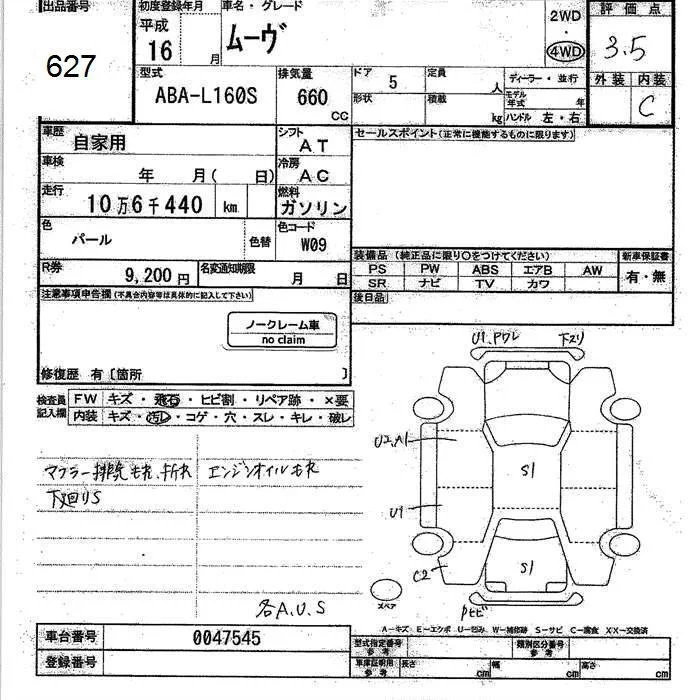 出品番号
627
初度登録年月
平成
16 月
車名・グレード
ムーヴ
2WD
・
4WD
評価点
3.5
外装 内装
C
型式
ABA-L160S
排気量
660
CC
ドア
5
定員
人
ディーラー・並行
形状
積載
kg
モデル年式
年
ハンドル 左・右
車歴
自家用
シフト
AT
セールスポイント(正常に機能するものに限ります)
車検
年 月( 日)
冷房
AC
走行
10万6千440 km
燃料
ガソリン
色
パール
色替
色コード
W09
装備品 (純正品に限り○をつけてください)
新車保証書
PS PW ABS エアB AW
SR ナビ TV カワ
有・無
R券
9,200円
名変通知期限
月 日
後日品
注意事項申告欄(不具合内容等は具体的に記入して下さい)
ノークレーム車
no claim
修復歴 有〔箇所 〕
検査員
記入欄
FW キズ・飛石・ヒビ割・リペア跡・×要
内装 キズ・汚レ・コゲ・穴・スレ・キレ・破レ
U1、Pワレ
下スリ
U2,A1
S1
U1
S1
C2
スペア
Pヒビ
マフラー排気モレ、折レ
エンジンオイルモレ
下廻りS
各A,U,S
A－キズ E－エクボ U－凹ミ W－補修跡 S－サビ C－腐食 XX－交換済
車台番号
0047545
登録番号
型式指定番号
参考
類別区分番号
参考
車庫証明用
参考
長さ
cm
幅
cm
高さ
cm